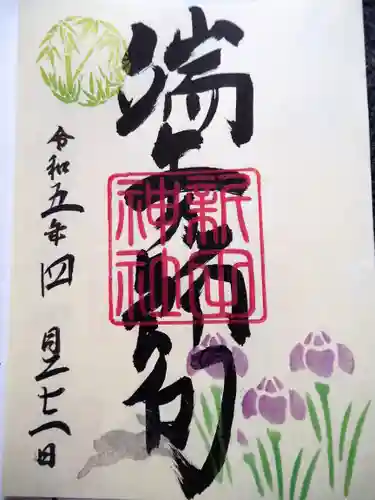 端午節句
新田神社
令和五年四月二十八日